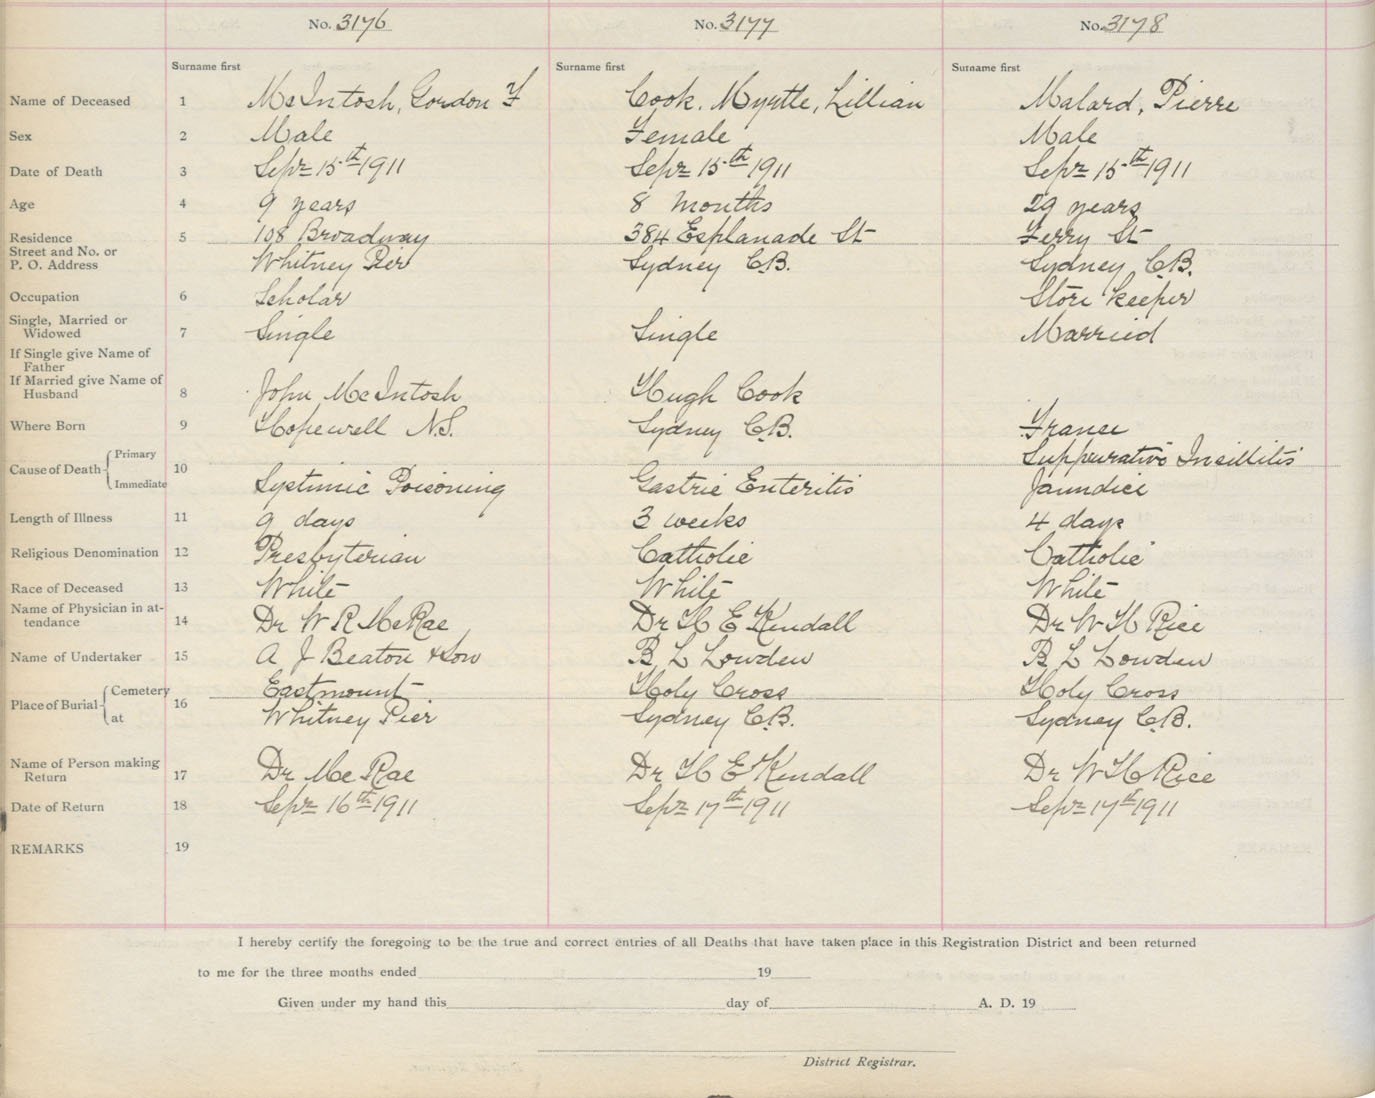 No. 3176 No. 3177 No. 3178
Surname first Surname first Surname first
Name of Deceased 1 McIntosh, Gordon F Cook, Myrtle, Lillian Malard, Pierre
Sex 2 Male Female Male
Date of Death 3 Sept 15th 1911 Sept 15th 1911 Sept 15th 1911
Age 4 9 years 8 months 29 years
Residence 5 108 Broadway 384 Esplanade St Ferry St
Street and No. or
P. O. Address Whitney Pier Sydney C.B. Sydney C.B.
Occupation 6 Scholar Store keeper
Single, Married or
Widowed 7 Single Single Married
If Single give Name of
Father
If Married give Name of
Husband 8 John McIntosh Hugh Cook
Where Born 9 Hopewell N.S. Sydney C.B. France
Cause of Death 10 Primary Suppurative
Immediate Systimic Poisoning Gastric Enteritis Jaundice
Length of Illness 11 9 days 3 weeks 4 days
Religious Denomination 12 Presbyterian Catholic Catholic
Race of Deceased 13 White White White
Name of Physician in at-
tendance 14 Dr W R McRae Dr H E Kendall Dr W H Rice
Name of Undertaker 15 A J Beaton & Son B L Lowden B L Lowden
Place of Burial 16 Cemetery Eastmount Holy Cross Holy Cross
at Whitney Pier Sydney C.B. Sydney C.B.
Name of Person making
Return 17 Dr McRae Dr H E Kendall Dr W H Rice
Date of Return 18 Sept 16th 1911 Sept 17th 1911 Sept 17th 1911
REMARKS 19
I hereby certify the foregoing to be the true and correct entries of all Deaths that have taken place in this Registration District and been returned
to me for the three months ended 19
Given under my hand this day of A. D. 19
District Registrar.